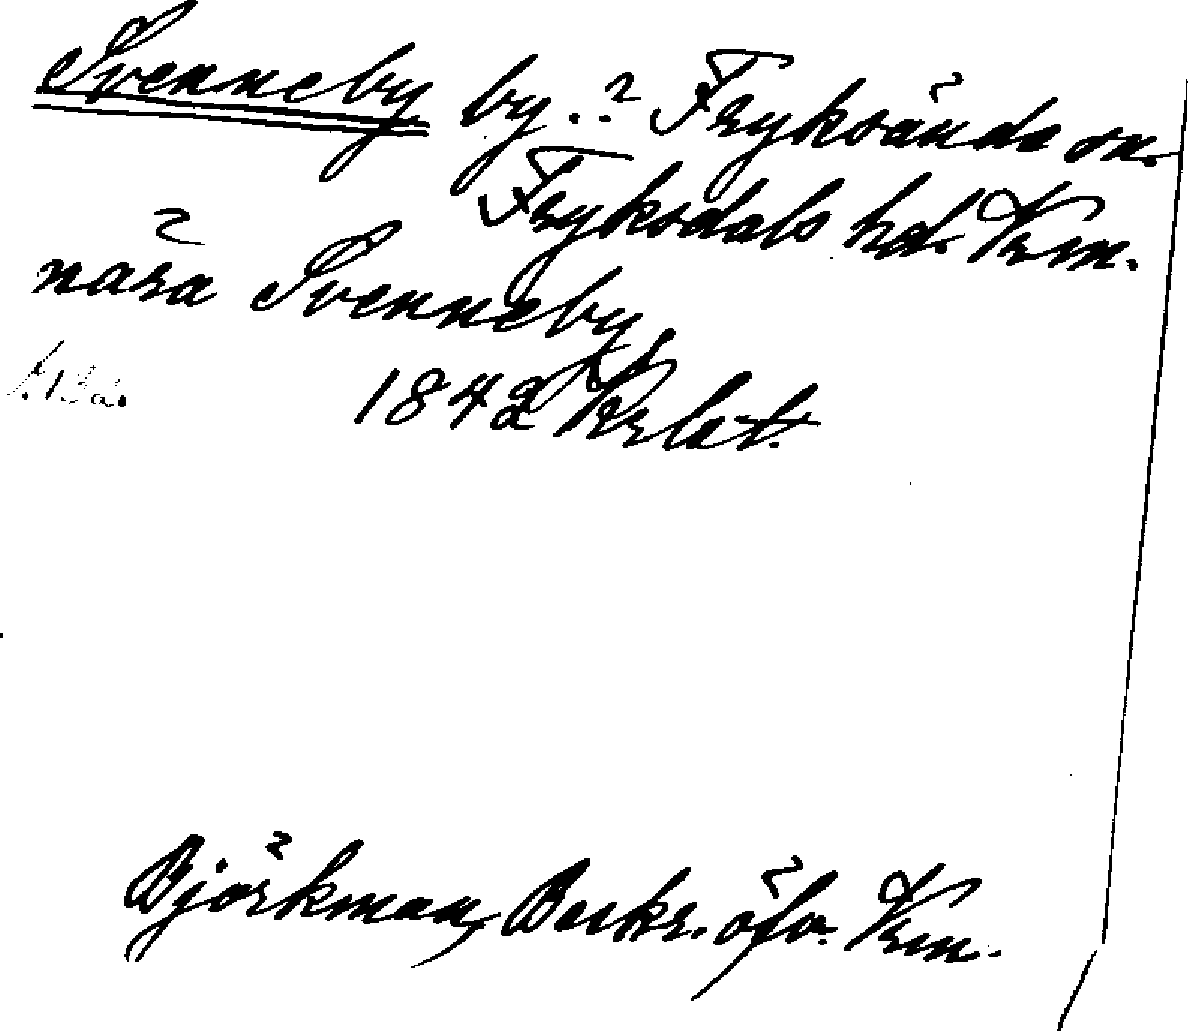 Svenneby by.? Fryksände sn.
Fryksdals hd. Vrm.
nära Svenneby
1842
Björkman, Beskr. öfv. Vrm.